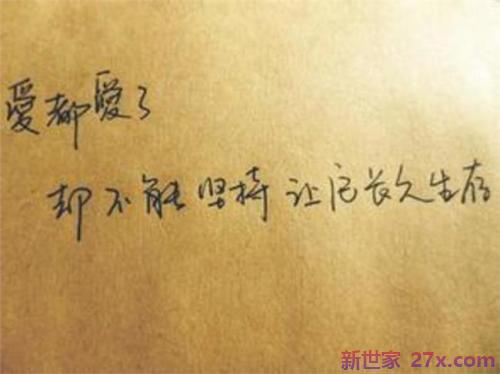 愛都愛了
却不能坚持让它长久生存
新世家 27x.com